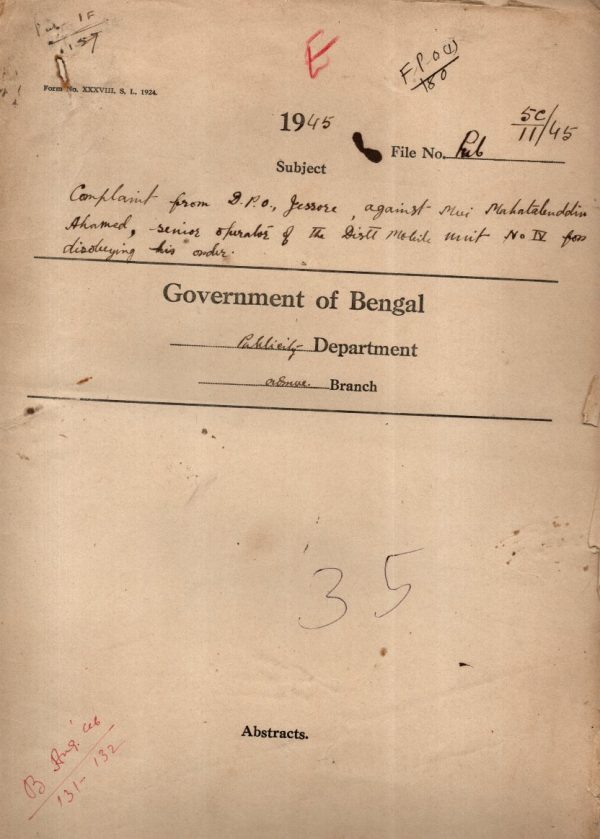 Pub IF
157
E
F.P.O (1)
180
Form No. XXXVIII, S. L., 1924.
1945
5C/
11/45
File No. Pub
Subject
Complaint from D.P.O., Jessore, against Mahatabuddin
Ahamed, senior operator of the Distt Mobile unit No IV for
disobeying his order.
Government of Bengal
Publicity Department
Branch
35
B Aug. 46
131-132
Abstracts.